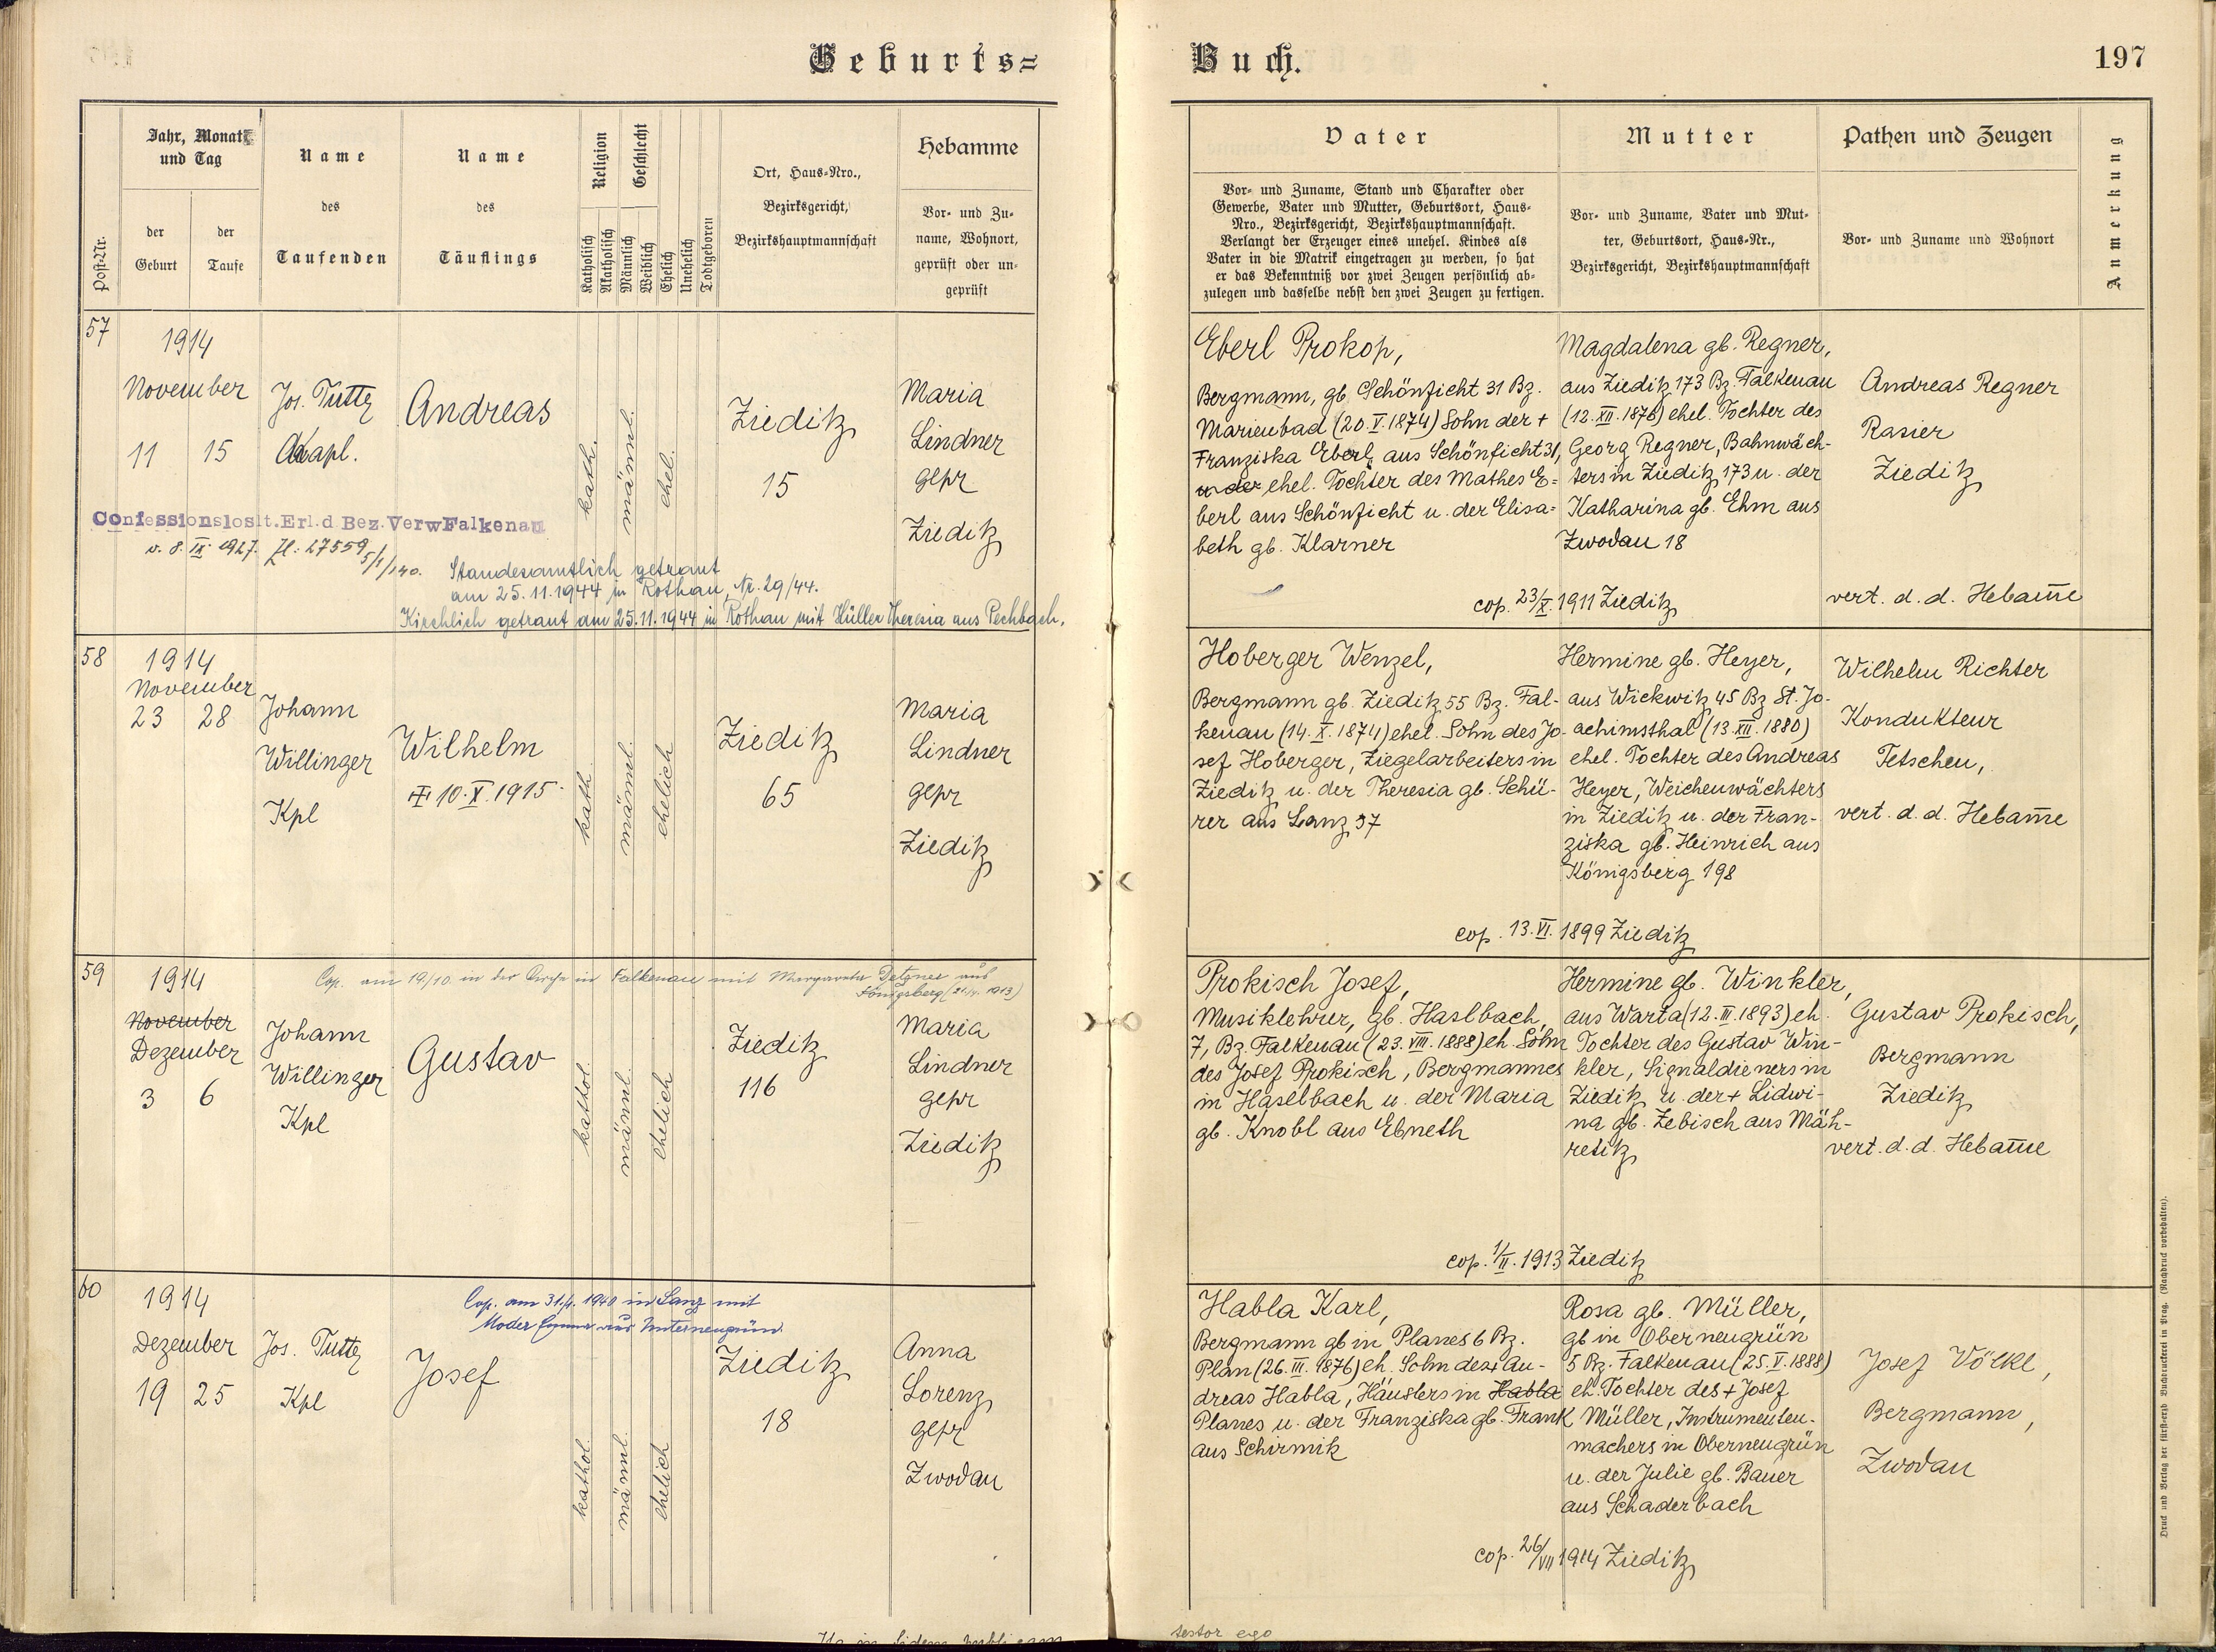 Geburts=
Jahr, Monat
und Tag
Name
des
Taufenden
Name
des
Täuflings
Religion
Geschlecht
Ort, Haus=Nro.,
Bezirksgericht,
Bezirkshauptmannschaft
Hebamme
Post=Nr.
der
Geburt
der
Taufe
Katholisch
Akatholisch
Männlich
Weiblich
Ehelich
Unehelich
Todtgeboren
Vor= und Zu=
name, Wohnort,
geprüft oder un=
geprüft
57
1914
November
11 15
Jos. Tuttz
Kapl.
Andreas
kath.
männl.
ehel.
Zieditz
15
Maria
Lindner
gepr
Zieditz
Confessionslos lt. Erl. d. Bez. Verw Falkenau
v. 8. IX. 1927. Zl: 27559
5/1/140.
Standesamtlich getraut
am 25.11.1944 in Rothau, Nr. 29/44.
Kirchlich getraut am 25.11.1944 in Rothau mit Hüller Theresia aus Pechbach.
58
1914
November
23 28
Johann
Willinger
Kpl
Wilhelm
10. X. 1915.
kath.
männl.
ehelich
Zieditz
65
Maria
Lindner
gepr
Zieditz
59
1914
Cop. am 19/10. in der Kirche in Falkenau mit Margarete aus
Königsberg
November
Dezember
3 6
Johann
Willinger
Kpl
Gustav
kathol.
männl.
ehelich
Zieditz
116
Maria
Lindner
gepr
Zieditz
60
1914
Cop. am 31./. 1940 in Lanz mit
Moder Emma aus Unterneugrün
Dezember
19 25
Jos. Tuttz
Kpl
Josef
kathol.
männl.
ehelich
Zieditz
18
Anna
Lorenz
gepr
Zwodau
Buch.
197
Vater
Vor= und Zuname, Stand und Charakter oder
Gewerbe, Vater und Mutter, Geburtsort, Haus=
Nro., Bezirksgericht, Bezirkshauptmannschaft.
Verlangt der Erzeuger eines unehel. Kindes als
Vater in die Matrik eingetragen zu werden, so hat
er das Bekenntniß vor zwei Zeugen persönlich ab=
zulegen und dasselbe nebst den zwei Zeugen zu fertigen.
Mutter
Vor= und Zuname, Vater und Mut=
ter, Geburtsort, Haus=Nr.,
Bezirksgericht, Bezirkshauptmannschaft
Pathen und Zeugen
Vor= und Zuname und Wohnort
Anmerkung
Eberl Prokop,
Bergmann, gb. Schönficht 31 Bz.
Marienbad (20. V. 1874) Sohn der +
Franziska Eberl, aus Schönficht 31,
u der ehel. Tochter des Mathes E=
berl aus Schönficht u. der Elisa=
beth gb. Klarner
Magdalena gb. Regner,
aus Zieditz 173 Bz. Falkenau
(12. XII. 1876) ehel. Tochter des
Georg Regner, Bahnwäch-
ters in Zieditz 173 u. der
Katharina gb. Ehm aus
Zwodau 18
Andreas Regner
Rasier
Zieditz
vert. d. d. Hebam̄e
cop. 23/X. 1911 Zieditz
Hoberger Wenzel,
Bergmann gb. Zieditz 55 Bz. Fal-
kenau (14. X. 1874) ehel. Sohn des Jo-
sef Hoberger, Ziegelarbeiters in
Zieditz u. der Theresia gb. Schü-
rer aus Lanz 37
Hermine gb. Heyer,
aus Wickwitz 45 Bz St. Jo-
achimsthal (13. XII. 1880)
ehel. Tochter des Andreas
Heyer, Weichenwächters
in Zieditz u. der Fran-
ziska gb. Heinrich aus
Königsberg 198
Wilhelm Richter
Kondukteur
Tetschen,
vert. d. d. Hebam̄e
cop. 13. VI. 1899 Zieditz
Prokisch Josef,
Musiklehrer, gb. Haslbach
7, Bz. Falkenau (23. VIII. 1888) eh. Sohn
des Josef Prokisch, Bergmannes
in Haselbach u. der Maria
gb. Knobl aus Ebneth
Hermine gb. Winkler,
aus Warta (12. III. 1893) eh.
Tochter des Gustav Win-
kler, Signaldieners in
Zieditz u. der + Lidwi-
na gb. Zebisch aus Mäh-
retitz
Gustav Prokisch,
Bergmann
Zieditz
vert. d. d. Hebam̄e
cop. 1/II. 1913 Zieditz
Habla Karl,
Bergmann gb in Planes 6 Bz.
Plan (26. III. 1876) eh. Sohn des + An-
dreas Habla, Häuslers in Habla
Planes u. der Franziska gb. Frank
aus Schirmik
Rosa gb. Müller,
gb in Oberneugrün
5 Bz. Falkenau (25. V. 1888)
eh. Tochter des + Josef
Müller, Instrumenten-
machers in Oberneugrün
u. der Julie gb. Bauer
aus Schaderbach
Josef Völkl,
Bergmann,
Zwodau
cop. 26/VII 1914 Zieditz
testor ego
Druck und Verlag der fürst=erzb Buchdruckerei in Prag. (Nachdruck vorbehalten).